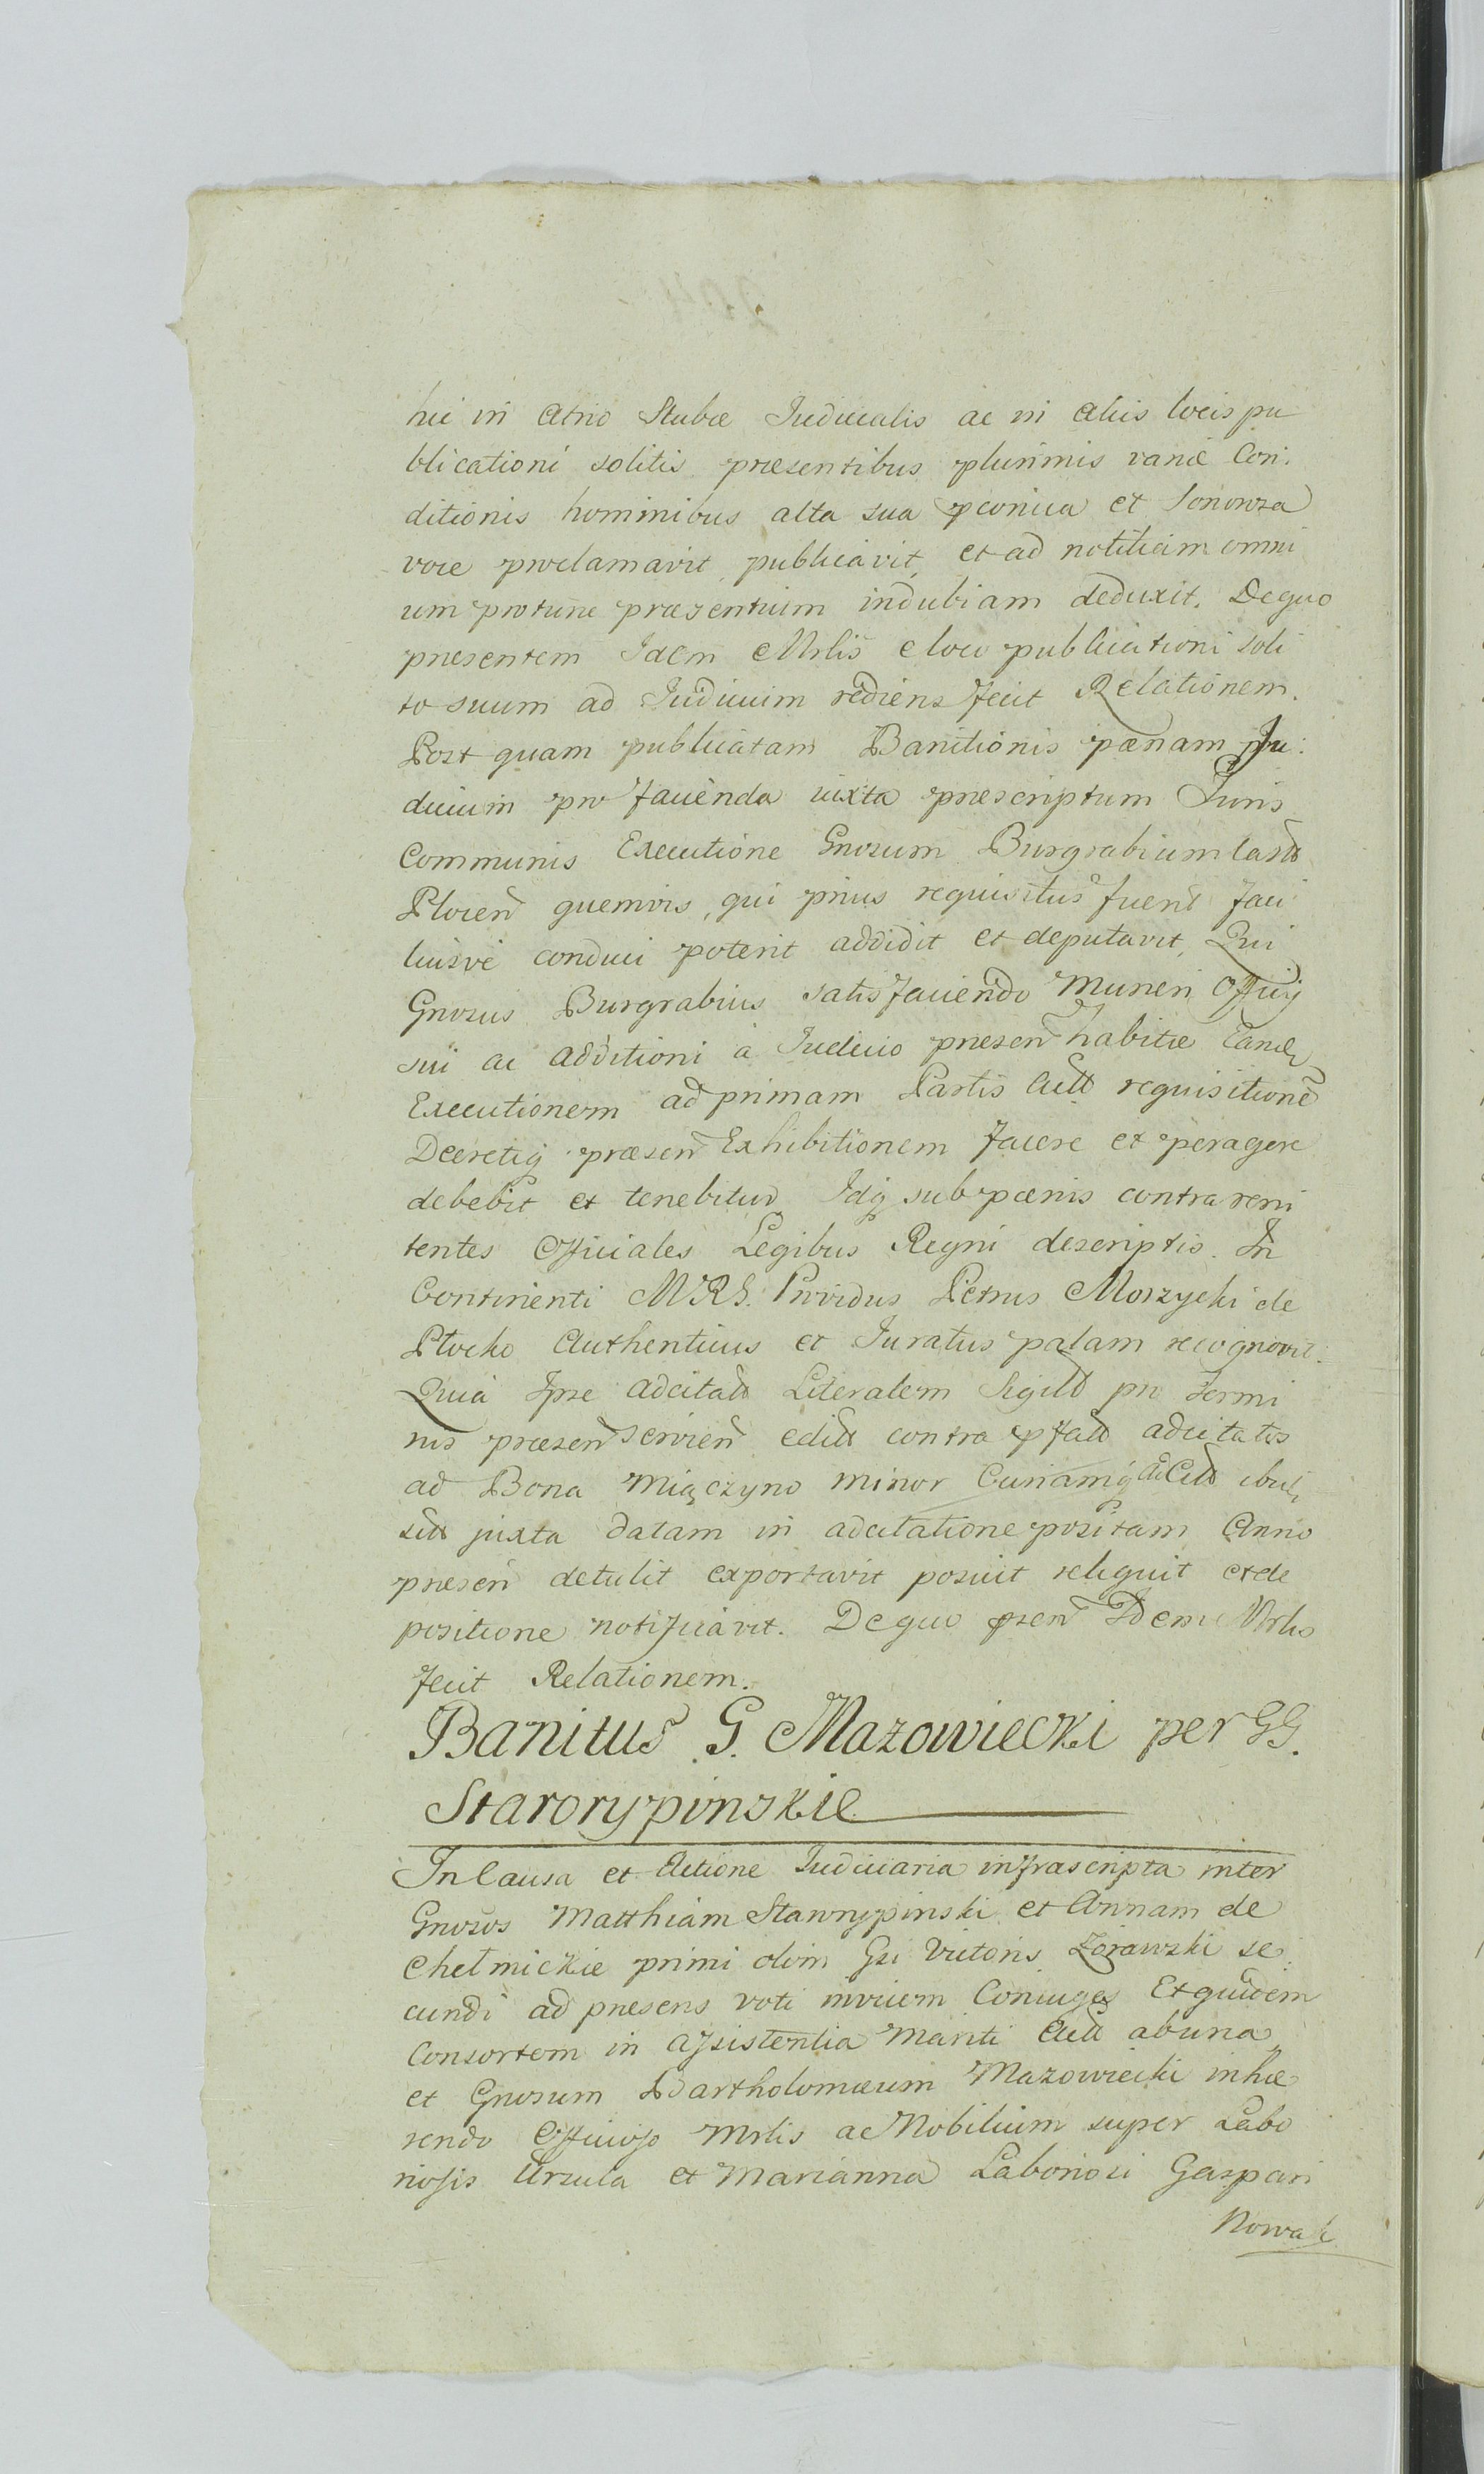 hic in Atrio Stubæ Judicialis ac in Aliis locis pu
blicationi solitis præsentibus plurimis variæ Con:
ditionis hominibus alta sua pconica et Sonorosa
voce proclamavit, publicavit, et ad notitiam omni
um protunc præsentium indubiam deduxit. De quo
præsentem Idem Mrlis e loco publicationi soli
to suum ad Judicium rediens fecit Relationem.
Post quam publicatam Banitionis pænam Ju:
dicium pro facienda iuxta præscriptum Juris
Communis Executione Gnosum Burgrabium Castr
Plocen quemvis, qui prius requisitus fuerit faci
liusve conduci poterit addidit et deputavit, Qui
Gnosus Burgrabius satisfaciendo Muneri Officij
sui ac additioni à Judicio præsen habitæ Eand
Executionem ad primam Partis Actt requisitione
Decretiq præsen Exhibitionem facere et peragere
debebit et tenebitur Idq sub pænis contra reni
tentes Officiales Legibus Regni descriptis. In
Continenti MRG. Providus Petrus Morzycki de
Plocko Authenticus et Juratus palam recognovit.
Quia Ipse adcitatt Literalem Sigill pro Termi
nis præsen servien editt contra pfatt adcitatos
ad Bona Miączyno minor Curiamq ibid
sitt juxta datam in adcitatione positam Anno
præsen detulit exportavit posuit reliquit et de
positione notificavit. De quo psen Idem Mrlis
fecit Relationem.
Banitus G. Mazowiecki per GG.
Starorypinskie
In Causa et Actione Judiciaria infrascripta inter
Gnosos Matthiam Starorypinski et Annam de
Chełmickie primi olim Gsi Victoris Zorawski se
cundi ad præsens voti invicem Coniuges Et quidem
Consortem in assistentia Mariti Actt ab una
et Gnosum Bartholomæum Mazowiecki inhæ
rendo Officioso Mrlis ac Nobilium super Labo
riosis Ursula et Marianna Laboriosi Gaspari
Nowak